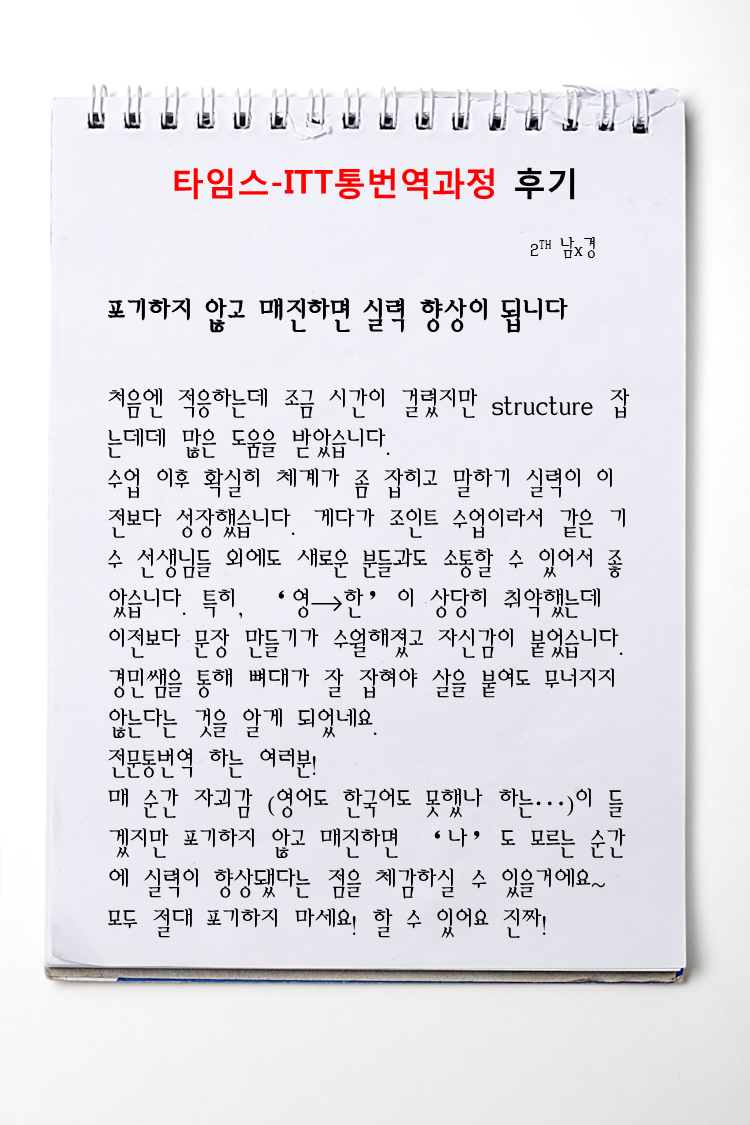 타임스-ITT통번역과정 후기
2TH 남x경
포기하지 않고 매진하면 실력 향상이 됩니다
처음엔 적응하는데 조금 시간이 걸렸지만 structure 잡
는데데 많은 도움을 받았습니다.
수업 이후 확실히 체계가 좀 잡히고 말하기 실력이 이
전보다 성장했습니다. 게다가 조인트 수업이라서 같은 기
수 선생님들 외에도 새로운 분들과도 소통할 수 있어서 좋
았습니다. 특히, ‘영→한’이 상당히 취약했는데
이전보다 문장 만들기가 수월해졌고 자신감이 붙었습니다.
경민쌤을 통해 뼈대가 잘 잡혀야 살을 붙여도 무너지지
않는다는 것을 알게 되었네요.
전문통번역 하는 여러분!
매 순간 자괴감 (영어도 한국어도 못했나 하는…)이 들
겠지만 포기하지 않고 매진하면 ‘나’도 모르는 순간
에 실력이 향상됐다는 점을 체감하실 수 있을거에요~
모두 절대 포기하지 마세요! 할 수 있어요 진짜!